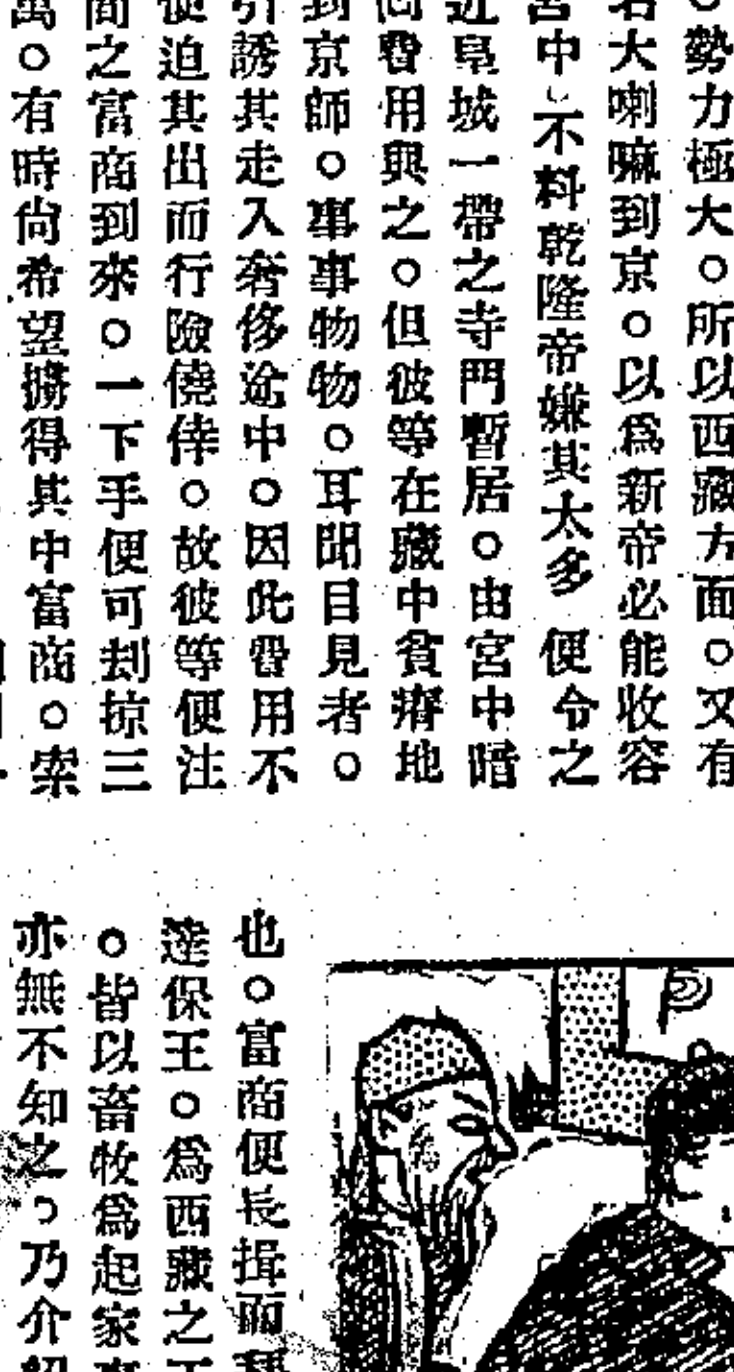 。勢力極大。所以西藏方面。又有
名大喇嘛到京。以爲新帝必能收容
宮中。不料乾隆帝嫌其太多 便令之
近阜城一帶之寺門暫居。由宮中暗
費用與之。但彼等在藏中貧瘠地
到京師。事事物物。耳聞目見者。
引誘其走入奢侈途中。因此費用不
便迫其出而行險僥倖。故彼等便注
間之富商到來。一下手便可刦掠三
萬。有時尙希望擄得其中富商。索
也。富商便長揖而
達保王。爲西藏之
。皆以畜牧爲起家
亦無不知之。乃介紹